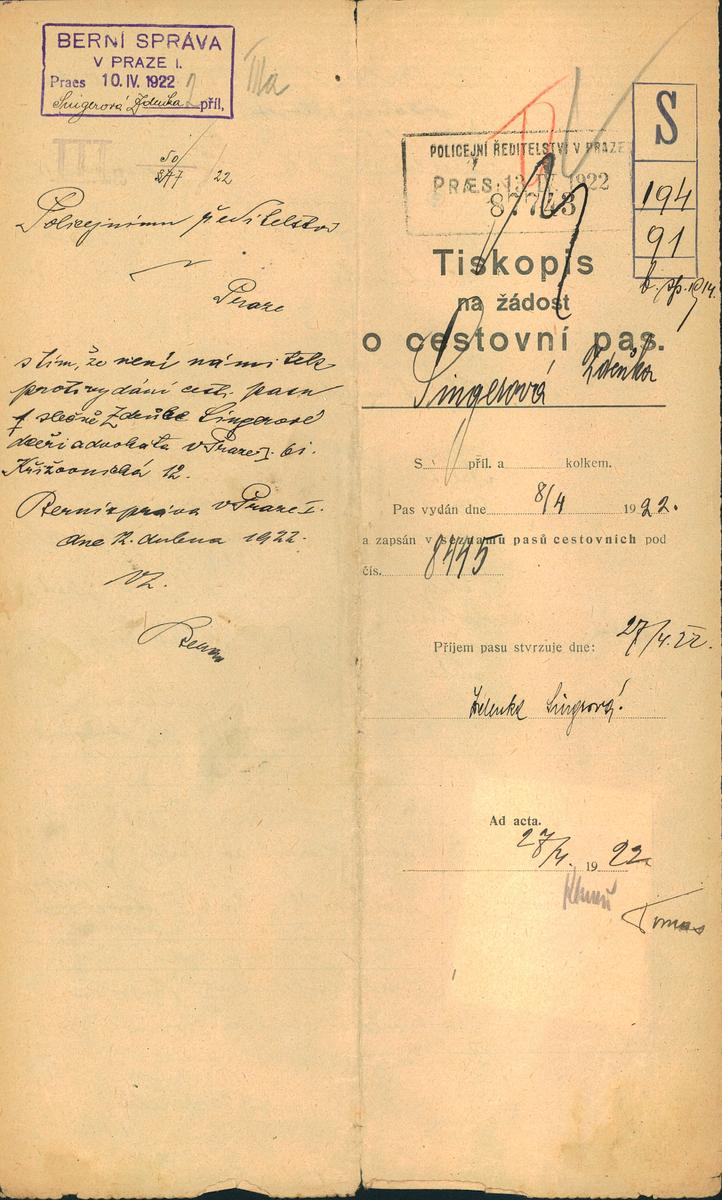 BERNÍ SPRÁVA
V PRAZE I.
Praes 10.IV.1922
Singerová Zdenka 2 příl,
IIIa
50/
277/22
Policejnímu ředitelství
v
Praze
s tím, že není námitek
proti vydání cest. pasu
slečně Zdeňce Singerové
dceři advokáta v Praze I. bt.
Křižovnická 12.
Berní správa v Praze I.
dne 12. dubna 1922.
VZ.
POLICEJNÍ ŘEDITELSTVÍ V PRAZE
PRÆS. 13 IV. 1922
87743
S
194
91
b. sp. 1914.
Tiskopis
na žádost
o cestovní pas.
Singerová Zdeňka
S příl. a kolkem.
Pas vydán dne 8/4 1922.
a zapsán v seznamu pasů cestovních pod
čís. 8445
Příjem pasu stvrzuje dne: 27/4.22.
Zdenka Singrová.
Ad acta.
27/4. 1922